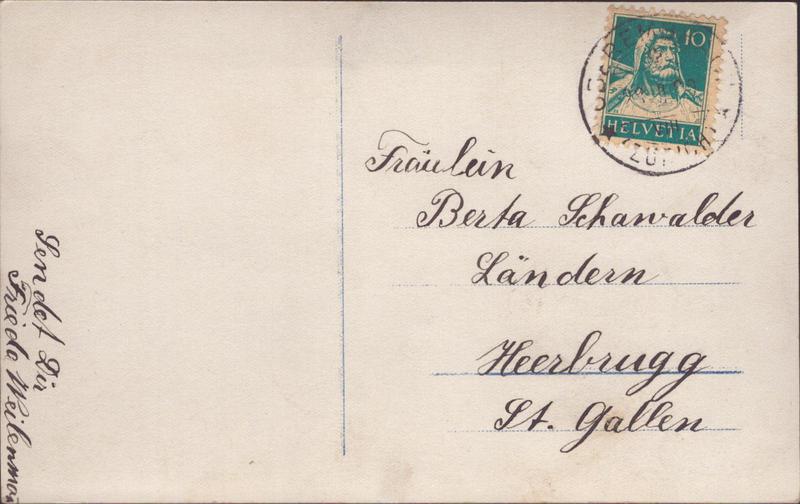 10
HELVETIA
Fräulein
Berta Schawalder
Ländern
Heerbrugg
St. Gallen
Sendet Dir